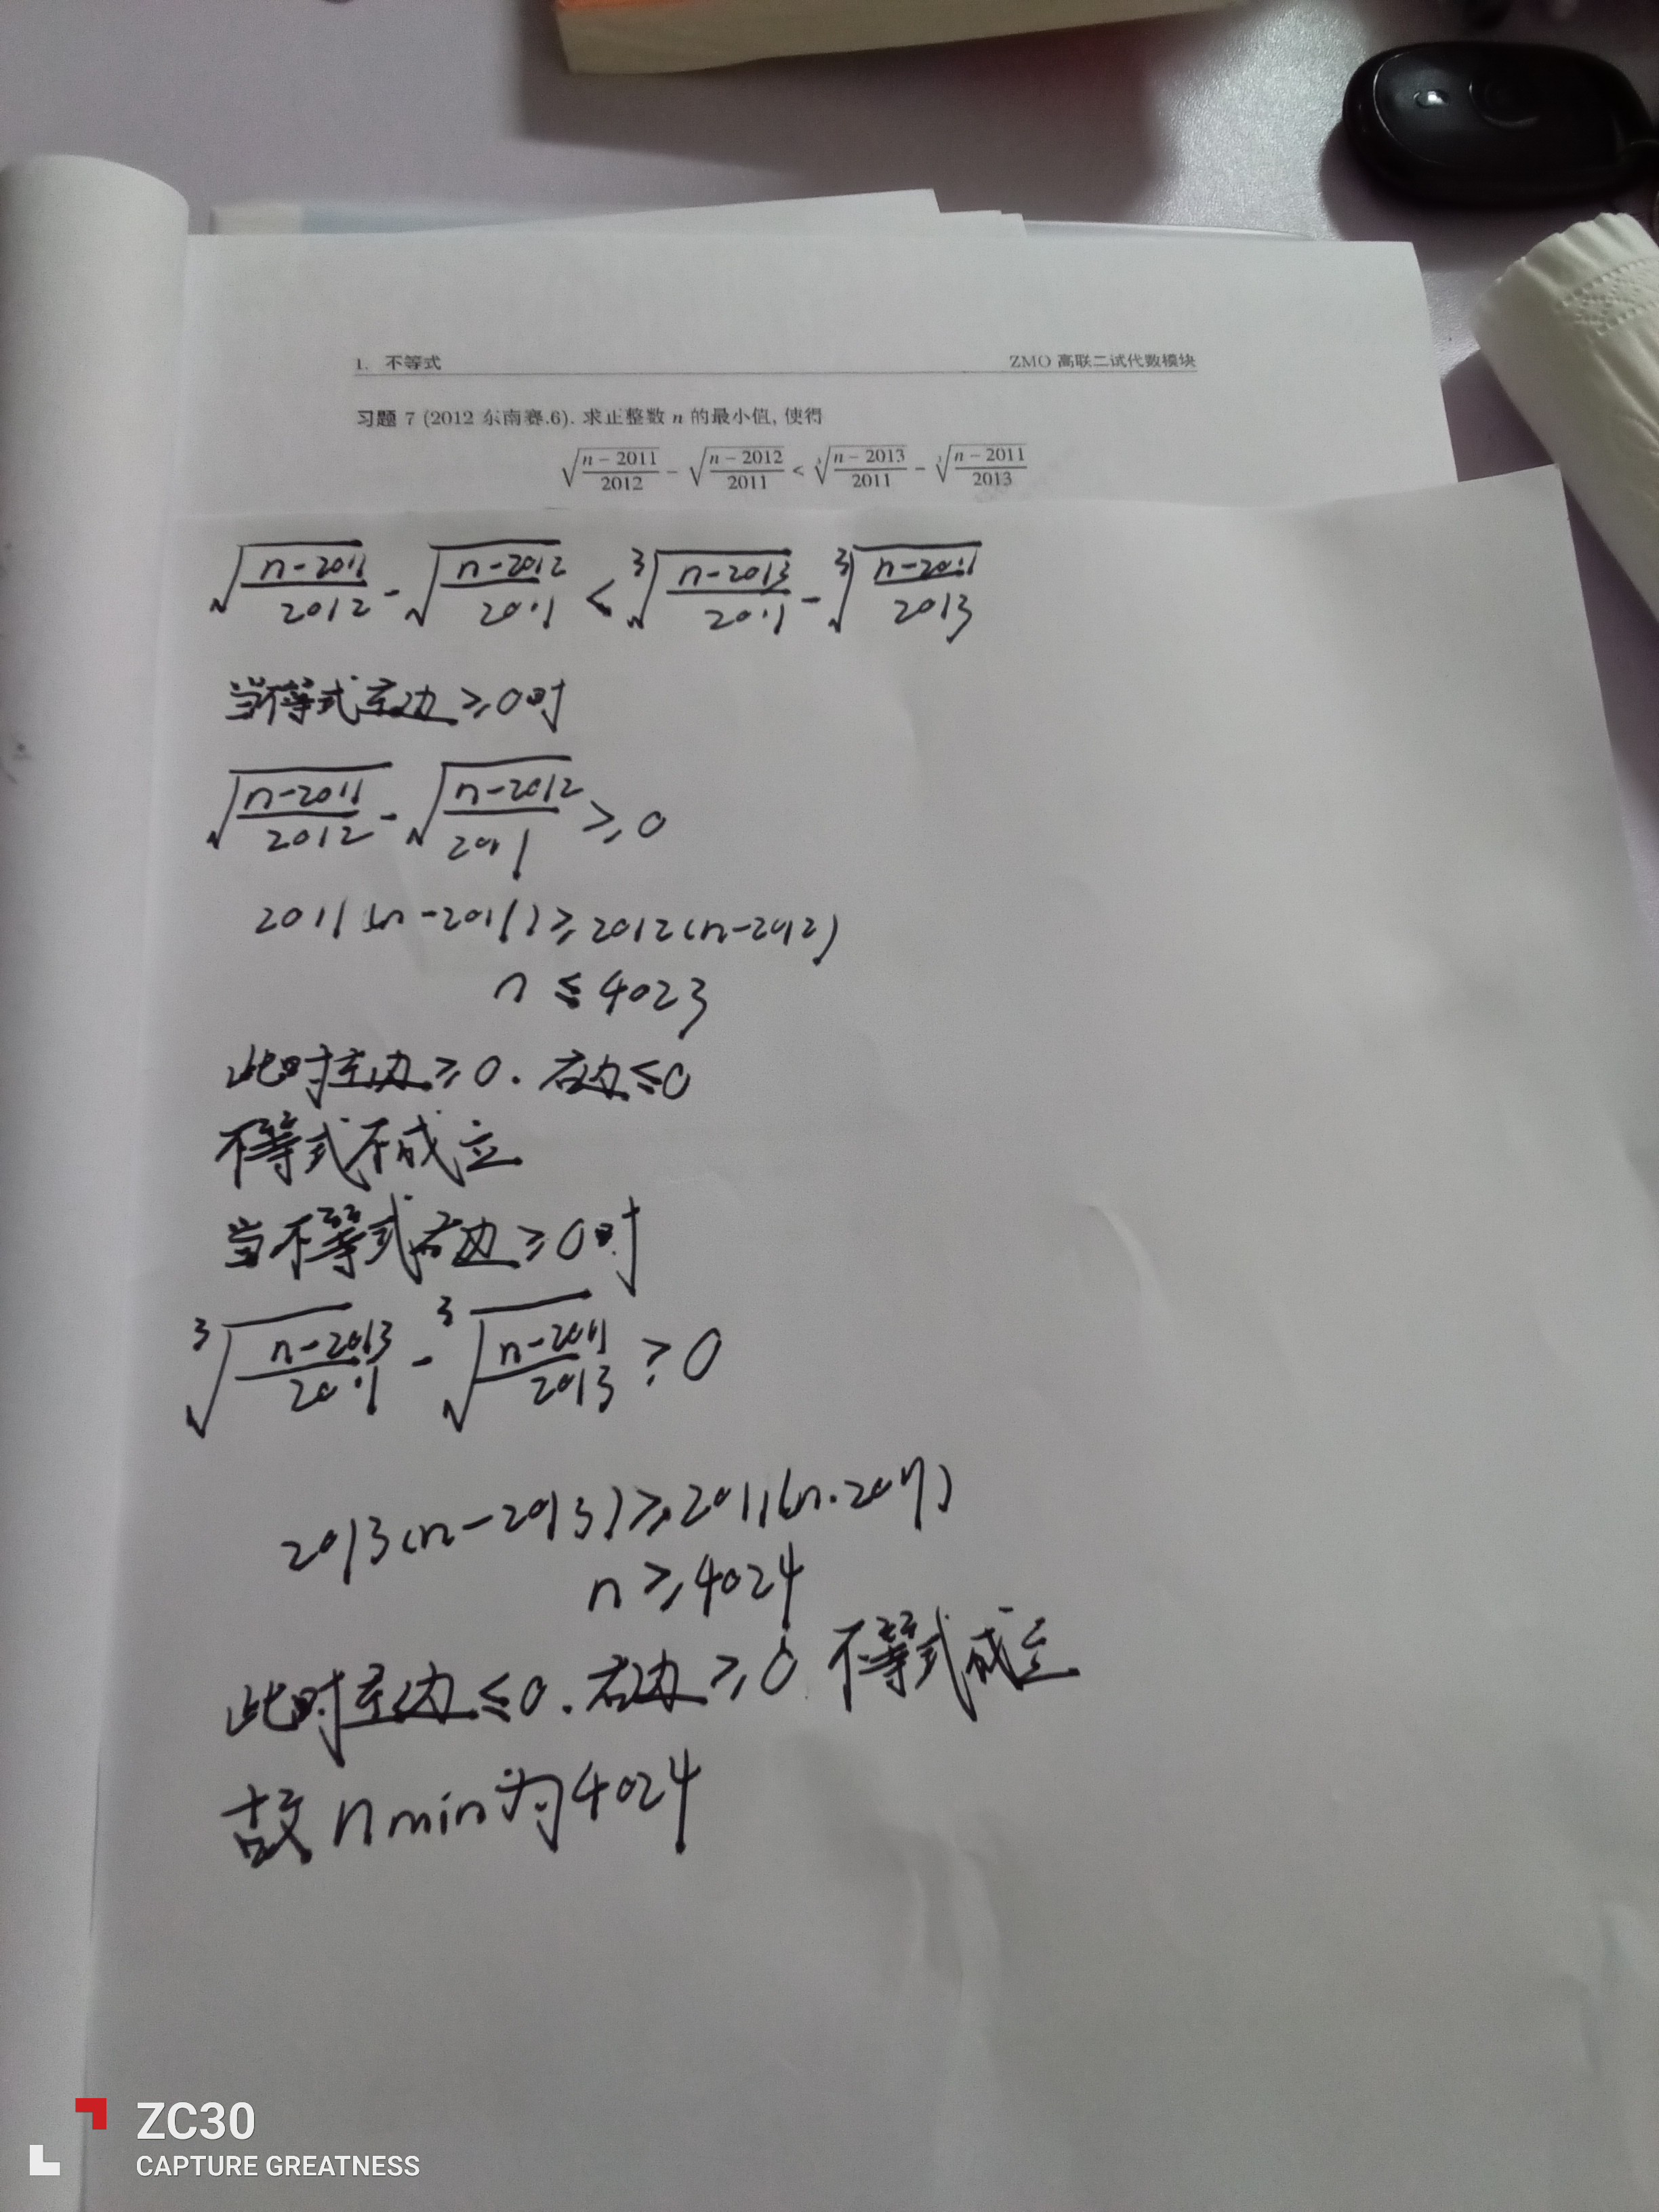 1. 不等式 ZMO 高联二试代数模块
习题 7 (2012 东南赛.6). 求正整数 n 的最小值, 使得
√((n − 2011)/2012) − √((n − 2012)/2011) < ∛((n − 2013)/2011) − ∛((n − 2011)/2013)
√((n-2011)/2012) - √((n-2012)/2011) < ∛((n-2013)/2011) - ∛((n-2011)/2013)
当不等式左边≥0时
√((n-2011)/2012) - √((n-2012)/2011) ≥ 0
2011(n-2011)≥2012(n-2012)
n ≤ 4023
此时左边≥0. 右边≤0
不等式不成立
当不等式右边≥0时
∛((n-2013)/2011) - ∛((n-2011)/2013) ≥ 0
2013(n-2013)≥2011(n-2011)
n ≥ 4024
此时左边≤0. 右边≥0 不等式成立
故 n min为4024
ZC30
CAPTURE GREATNESS